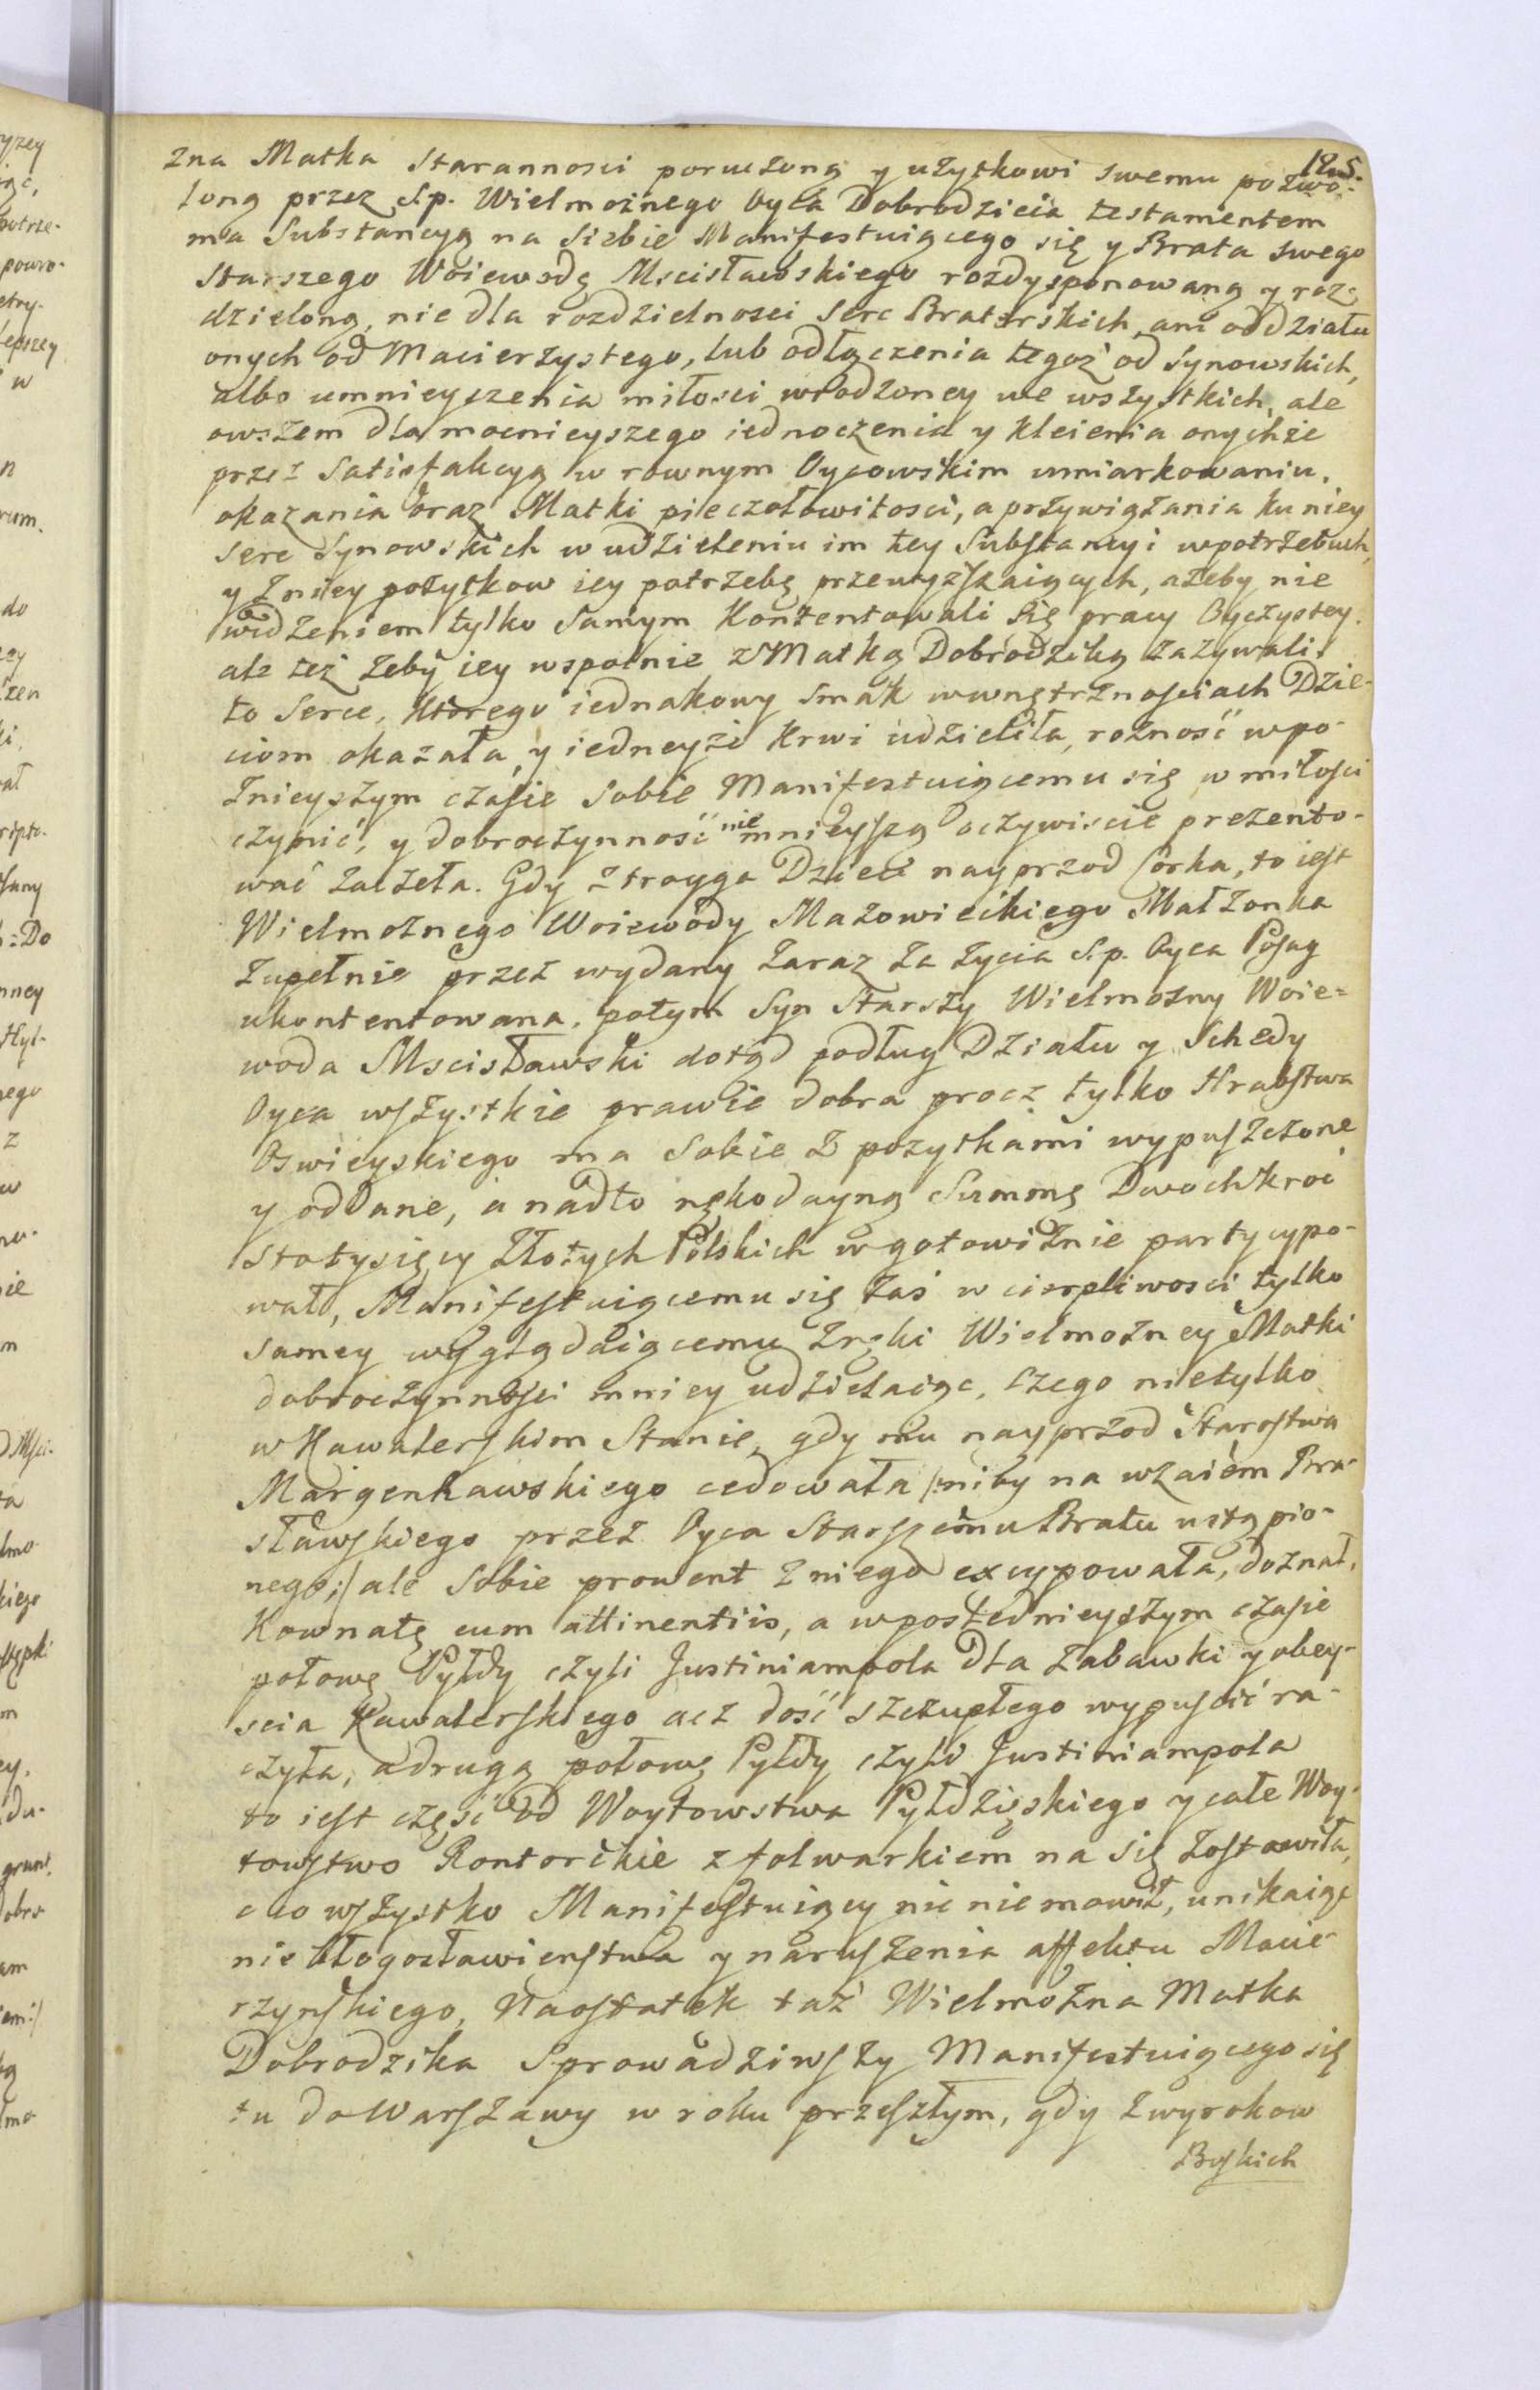 125.
żna Matka Starannosci poruczoną y użytkowi swemu pozwo-
loną przez S.p. Wielmożnego Oyca Dobrodzieia testamentem
ma Substancyą na Siebie Manifestuiącego się y Brata swego
Starszego Woiewodę Mscisławskiego rozdysponowaną y roz-
dzieloną, nie dla rozdzielnosci Serc Braterskich, ani oddziału
onych od Macierzystego, lub odłączenia tegoż od Synowskich,
albo umnieyszenia miłosci wrodzoney we wszystkich, ale
owszem dla mocnieyszego iednoczenia y kleienia onychże
przez Satisfakcyą w rownym Oycowskim umiarkowaniu,
okazania oraz Matki pieczołowitosci, a przywiązania ku niey
Serc Synowskich w udzieleniu im tey Substancyi w potrzebach,
y z niey pożytkow iey potrzebę przewyższaiących, ażeby nie
widzeniem tylko Samym Kontentowali się pracy Oyczystey.
ale też żeby iey wspolnie z Matką Dobrodziką zażywali.
to Serce, ktorego iednakowy Smak wwnętrznosciach Dzie-
ciom okazała, y iedneyże krwi udzieliła, rożność w po-
źnieyszym czasie Sobie Manifestuiącemu się w miłosci
czynić, y dobroczynność nie mnieyszą oczywiscie prezento-
wać zaczeła. Gdy z troyga Dzieci nayprzod Corka, to iest
Wielmożnego Woiewody Mazowieckiego Małżonka
Zupełnie przez wydany zaraz za życia S.p. Oyca Posag
ukontentowana, potym Syn Starszy Wielmożny Woie=
woda Mscisławski dotąd podług Działu y Schedy
Oyca wszystkie prawie dobra procz tylko Hrabstwa
Oswieyskiego ma Sobie z pożytkami wypuszczone
y oddane, a nadto rękodayną Summę Dwochkroć
stotysięcy Złotych Polskich w gotowiźnie partycypo-
wał, Manifestuiącemu się zaś w cierpliwosci tylko
samey wyglądaiącemu z ręki Wielmożney Matki
dobroczynnosci mniey udzielaiąc, czego nietylko
w Kawalerskim Stanie, gdy mu nayprzod Starostwa
Margenhawskiego cedowała /:niby na wzaiem Bra-
sławskiego przez Oyca Starszemu Bratu ustąpio-
nego:/ ale Sobie prowent z niego excypowała, doznał,
Kownatę cum attinentiis, a w poslednieyszym czasie
połowę Pyłdy czyli Justiniampola dla zabawki y obey-
scia Kawalerskiego acz dość szczupłego wypuscić ra-
czyła, a drugą połowę Pyłdy czyli Justiniampola
to iest część od Woytowstwa Pyłdzięskiego y całe Woy-
towstwo Kontorskie z folwarkiem na się zostawiła,
o co wszystko Manifestuiący nic nie mowił, unikaiąc
nie błogosławienstwa y naruszenia affektu Macie-
rzynskiego, Naostatek taż Wielmożna Matka
Dobrodzika Sprowadziwszy Manifestuiącego się
tu do Warszawy w roku przeszłym, gdy z wyrokow
Boskich